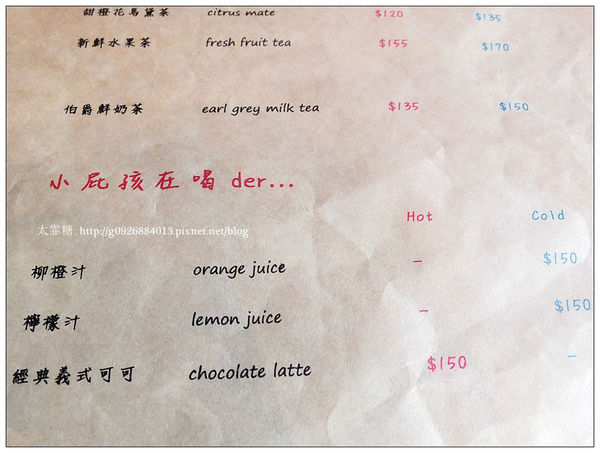 甜橙花馬黛茶 citrus mate $120 $135
新鮮水果茶 fresh fruit tea $155 $170
伯爵鮮奶茶 earl grey milk tea $135 $150
小屁孩在喝 der...
Hot Cold
太霏糖 http://g0926884013.pixnet.net/blog
柳橙汁 orange juice – $150
檸檬汁 lemon juice – $150
經典義式可可 chocolate latte $150 –